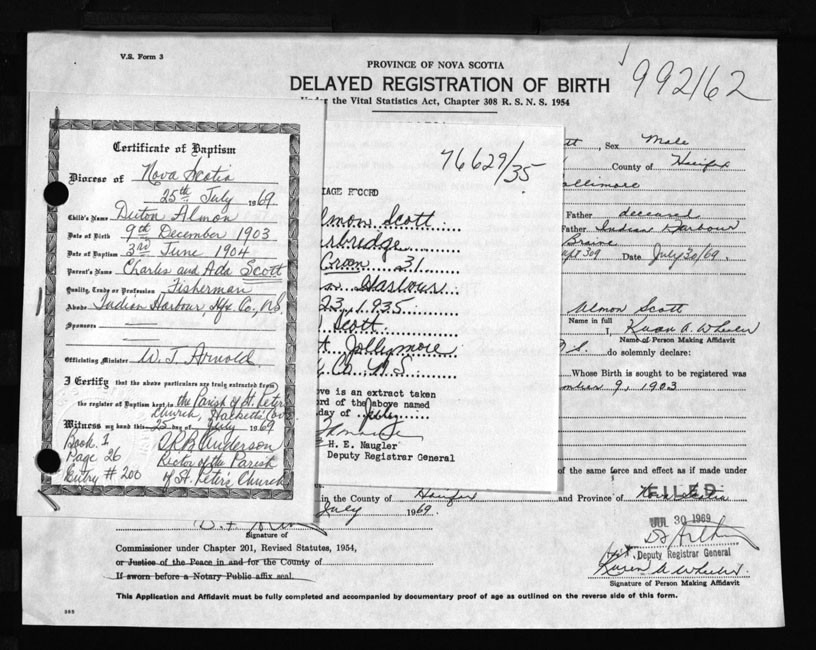 V.S. Form 3
PROVINCE OF NOVA SCOTIA
DELAYED REGISTRATION OF BIRTH
Under the Vital Statistics Act, Chapter 308 R. S. N. S. 1954
992162
Certificate of Baptism
Diocese of Nova Scotia
25th July 1969
Child's Name Duton Almon
Date of Birth 9th December 1903
Date of Baptism 3rd June 1904
Parent's Name Charles and Ada Scott
Quality, Trade or Profession Fisherman
Abode Indian Harbour, Hfx. Co., N.S.
Sponsors
Officiating Minister W. J. Arnold
I Certify that the above particulars are truly extracted from
the register of Baptism kept in the Parish of St. Peter's
Church, Hackett's Cove
Witness my hand this 25 day of July 1969
Book 1
Page 26
Entry # 200
Anderson
Rector of the Parish
of St. Peter's Church
76629/35
IAGE RECORD
lmon Scott
rbridge
Groom 31
Harbour
23, 1935
Scott
Jollymore
Co. N.S.
ve is an extract taken
rd of the above named
day of July
H. E. Naugler
Deputy Registrar General
tt, Sex Male
County of Halifax
ollimore
Father deceased
Father Indian Harbour
Braine
Apt 309 Date July 30/69.
Almon Scott
Name in full
I, A. Wheeler
Name of Person Making Affidavit
do solemnly declare:
Whose Birth is sought to be registered was
mber 9, 1903
of the same force and effect as if made under
in the County of Halifax and Province of Nova Scotia
July 1969.
FILED
JUL 30 1969
Deputy Registrar General
Signature of
Commissioner under Chapter 201, Revised Statutes, 1954,
or Justice of the Peace in and for the County of
If sworn before a Notary Public affix seal.
Karen A Wheeler
Signature of Person Making Affidavit
This Application and Affidavit must be fully completed and accompanied by documentary proof of age as outlined on the reverse side of this form.